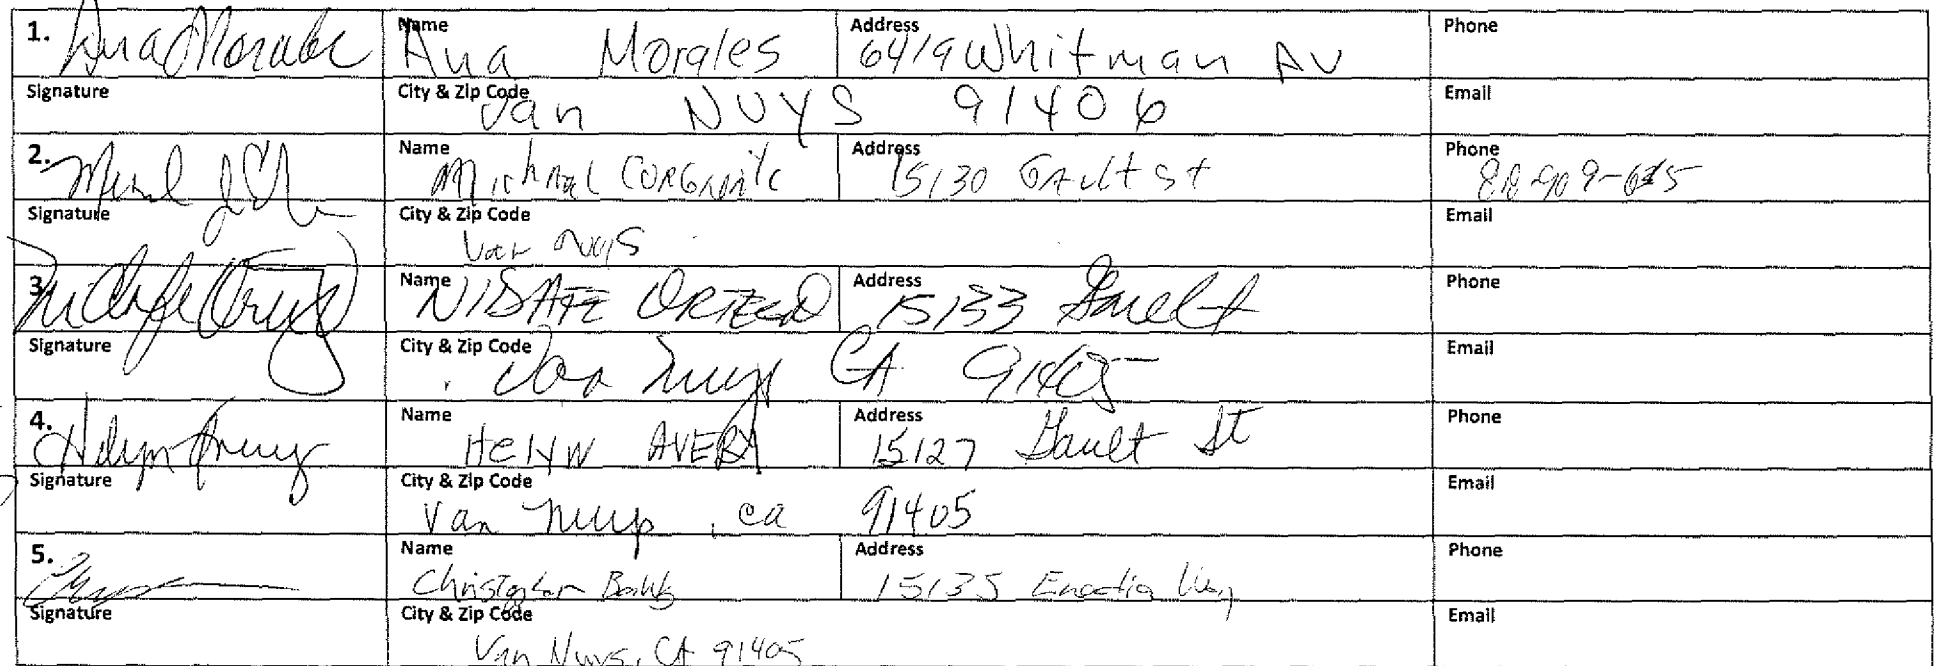 1. Ana Morales Name Ana Morales Address 6419 Whitman Av Phone
Signature City & Zip Code Van NUYS 91406 Email
2. Name Michael Address 15130 Gault st Phone
Signature City & Zip Code Van Nuys Email
3. Name Address 15133 Gault Phone
Signature City & Zip Code Van Nuys CA 91405 Email
4. Name Helyn AVERY Address 15127 Gault St Phone
Signature City & Zip Code Van Nuys, ca 91405 Email
5. Name Christopher Address 15135 Phone
Signature City & Zip Code Van Nuys, CA 91405 Email